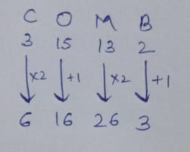 C O M B
3 15 13 2
×2 +1 ×2 +1
6 16 26 3